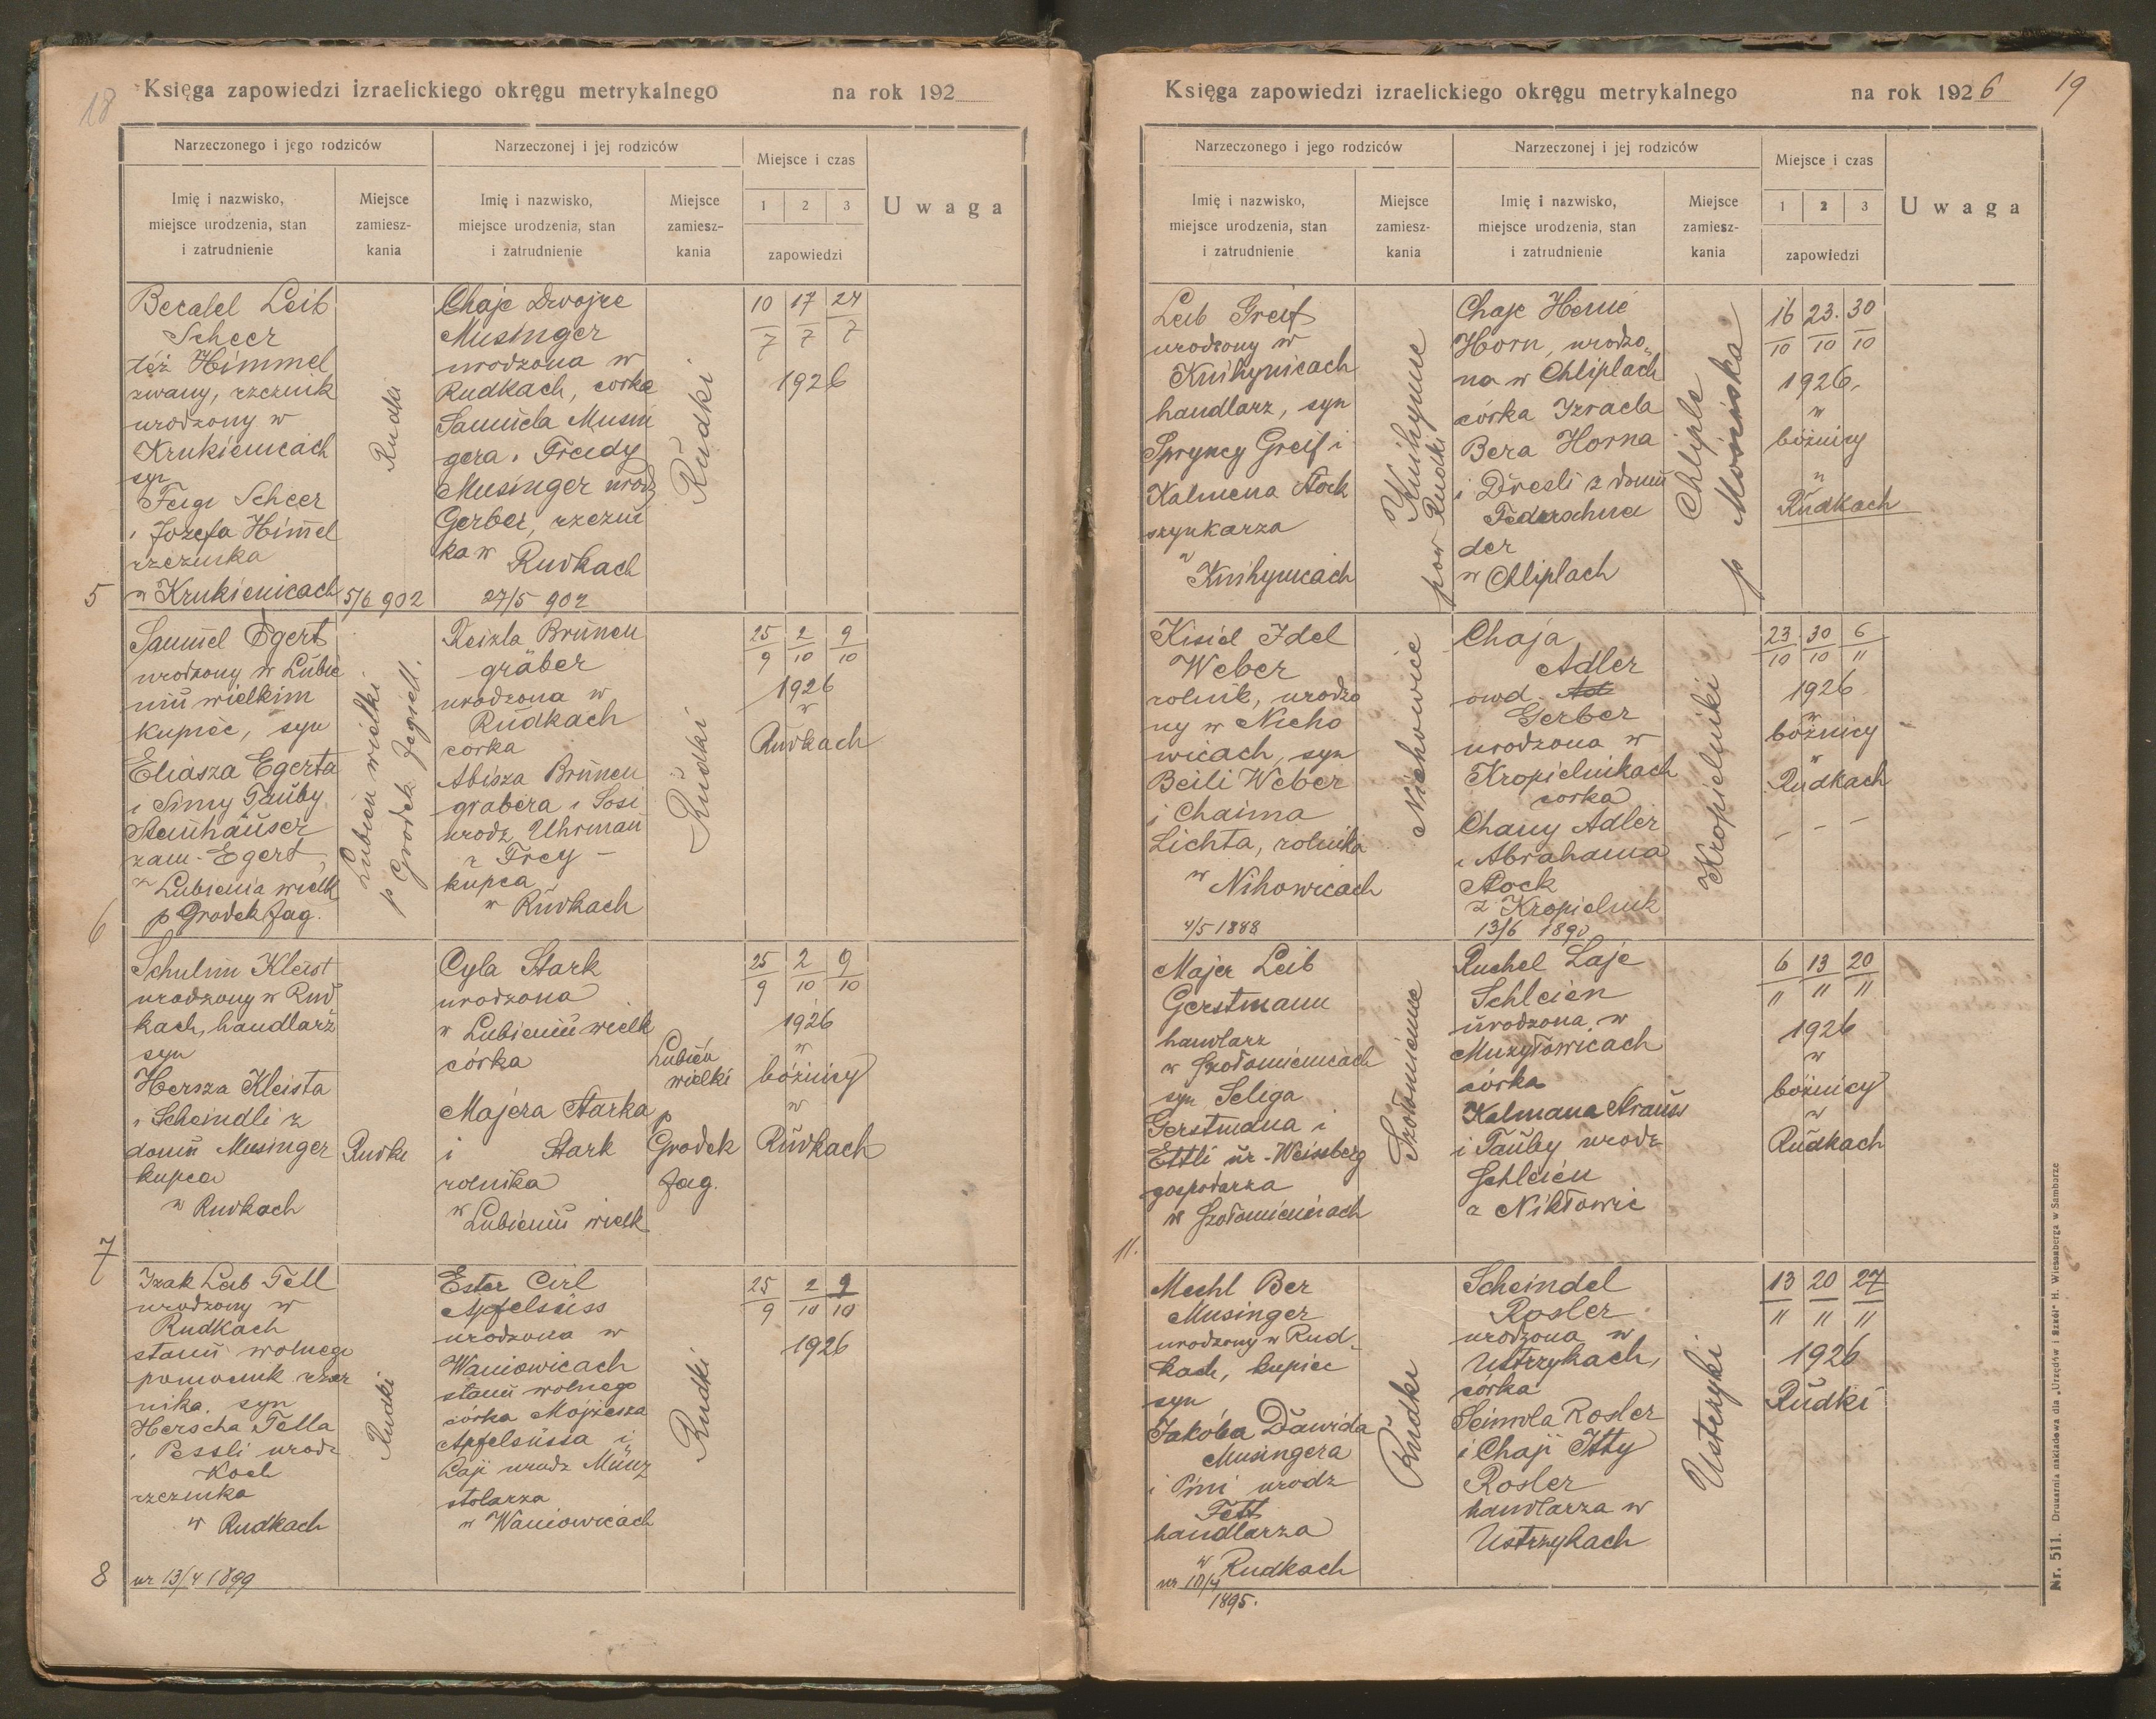 18
Księga zapowiedzi izraelickiego okręgu metrykalnego na rok 192
Narzeczonego i jego rodziców
Narzeczonej i jej rodziców
Miejsce i czas
Uwaga
Imię i nazwisko,
miejsce urodzenia, stan
i zatrudnienie
Miejsce
zamiesz-
kania
Imię i nazwisko,
miejsce urodzenia, stan
i zatrudnienie
Miejsce
zamiesz-
kania
1 2 3
zapowiedzi
Becalel Leib
Scheer
też Himmel
zwany, rzeznik
urodzony w
Krukienicach
syn
Feigi Scheer
i Jozefa Himel
rzeznika
w Krukienicach
5
5/6 902
Rudki
Chaje Dwojre
Musinger
urodzona w
Rudkach, corka
Samuela Musin
gera i Freidy
Musinger urodz
Gerber, rzezni
ka w Rudkach
27/5 902
Rudki
10 17 24
7 7 7
1926
Samuel Egert
urodzony w Lubie
niu wielkim
kupiec, syn
Eliasza Egerta
i Simy Tauby
Steinhauser
zam. Egert
z Lubienia wielk
p Grodek Jag.
6
Lubien wielki
p Grodek Jagiell.
Reizla Brunen
gräber
urodzona w
Rudkach
corka
Abisza Brunen
grabera i Sosi
urodz Uhrman
z Frey
kupca
w Rudkach
Rudki
25 2 9
9 10 10
1926
w
Rudkach
Schulim Kleist
urodzony w Rud
kach, handlarz
syn
Hersza Kleista
i Scheindli z
domu Musinger
kupca
w Rudkach
7
Rudki
Cyla Stark
urodzona
w Lubieniu wielk
córka
Majera Starka
i Stark
rolnika
w
Lubieniu wielk
Lubień
wielki
p
Grodek
Jag.
25 2 9
9 10 10
1926
w
bóżnicy
w
Rudkach
Izak Leib Tell
urodzony w
Rudkach
stanu wolnego
pomocnik rzez
nika, syn
Herscha Tella
i Pessli urodz
Koch
rzeznika
w Rudkach
8
ur 13/4 1899
Rudki
Ester Cirl
Apfelsüss
urodzona w
Waniowicach
stanu wolnego
córka Mojżesza
Apfelsüssa i
Laji urodz Münz
stolarza
w Waniowicach
Rudki
25 2 9
9 10 10
1926
19
Księga zapowiedzi izraelickiego okręgu metrykalnego na rok 1926
Narzeczonego i jego rodziców
Narzeczonej i jej rodziców
Miejsce i czas
Uwaga
Imię i nazwisko,
miejsce urodzenia, stan
i zatrudnienie
Miejsce
zamiesz-
kania
Imię i nazwisko,
miejsce urodzenia, stan
i zatrudnienie
Miejsce
zamiesz-
kania
1 2 3
zapowiedzi
Leib Greif
urodzony w
Knihynicach
handlarz, syn
Spryncy Greif i
Kalmena Stock
szynkarza
w
Knihynicach
Knihynice
pow Rudki
Chaje Henie
Horn, urodzo„
na w Chliplach
córka Izraela
Bera Horna
i Dresli z domu
Federschnei
der
w Chliplach
Chliple
p Mościska
16 23. 30
10 10 10
1926.
w
bóżnicy
w
Rudkach
Kisiel Idel
Weber
rolnik, urodzo
ny w Nicho
wicach, syn
Beili Weber
i Chaima
Lichta, rolnika
w
Nihowicach
4/5 1888
Nichowice
Chaja
Adler
owd.
Gerber
urodzona w
Kropielnikach
corka
Chany Adler
i Abrahama
Stock
z Kropielnik
13/6 1890
Kropielniki
23 30 6
10 10 11
1926
w
bóżnicy
w
Rudkach
Majer Leib
Gerstmann
handlarz
w Szołomienicach
syn Seliga
Gerstmana i
Ettli ur. Weissberg
gospodarza
w Szołomienicach
11.
Szołomienice
Ruchel Laje
Schleien
urodzona w
Mużyłowicach
córka
Kalmana Strauss
i Tauby urodz
Schleien
z Nikłowic
6 13 20
11 11 11
1926
w
bóżnicy
w
Rudkach
Mechl Ber
Musinger
urodzony w Rud-
kach, kupiec
syn
Jakóba Dawida
Musingera
i Pini urodz
Tett
handlarza
w
Rudkach
ur 10/4
1895.
Rudki
Scheindel
Rosler
urodzona w
Ustrzykach,
córka
Seimola Rosler
i Chaji Itty
Rosler
handlarza w
Ustrzykach
Ustrzyki
13 20 27
11 11 11
1926
Rudki
Nr. 511. Drukarnia nakładowa dla „Urzędów i Szkół" H. Wiesenberga w Samborze